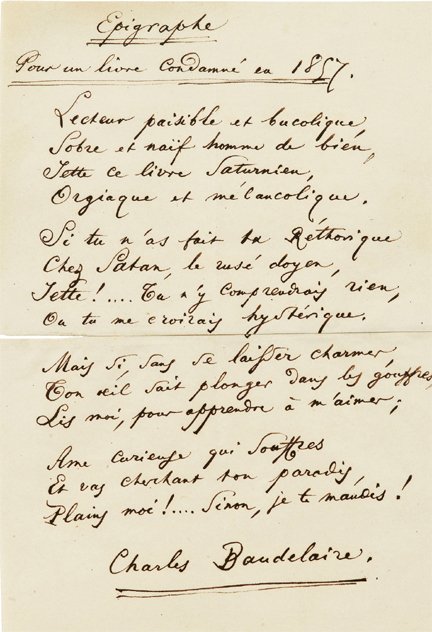 Epigraphe
Pour un livre condamné en 1857.
Lecteur paisible et bucolique,
Sobre et naïf homme de bien,
Jette ce livre Saturnien,
Orgiaque et mélancolique.
Si tu n'as fait ta Réthorique
Chez Satan, le rusé doyen,
Jette!.... Tu n'y comprendrais rien,
Ou tu me croirais hystérique.
Mais si, sans se laisser charmer,
Ton œil sait plonger dans les gouffres,
Lis moi, pour apprendre à m'aimer;
Ame curieuse qui souffres
Et vas cherchant ton paradis,
Plains moi!.... Sinon, je te maudis!
Charles Baudelaire.